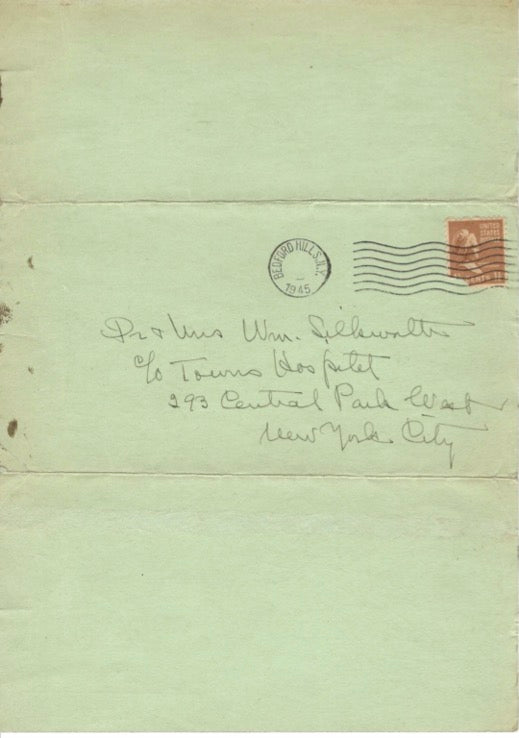 UNITED
STATES
BEDFORD HILLS, N.Y.
1945
Dr & Mrs Wm. Silkworth
c/o Towns Hospital
293 Central Park West
New York City